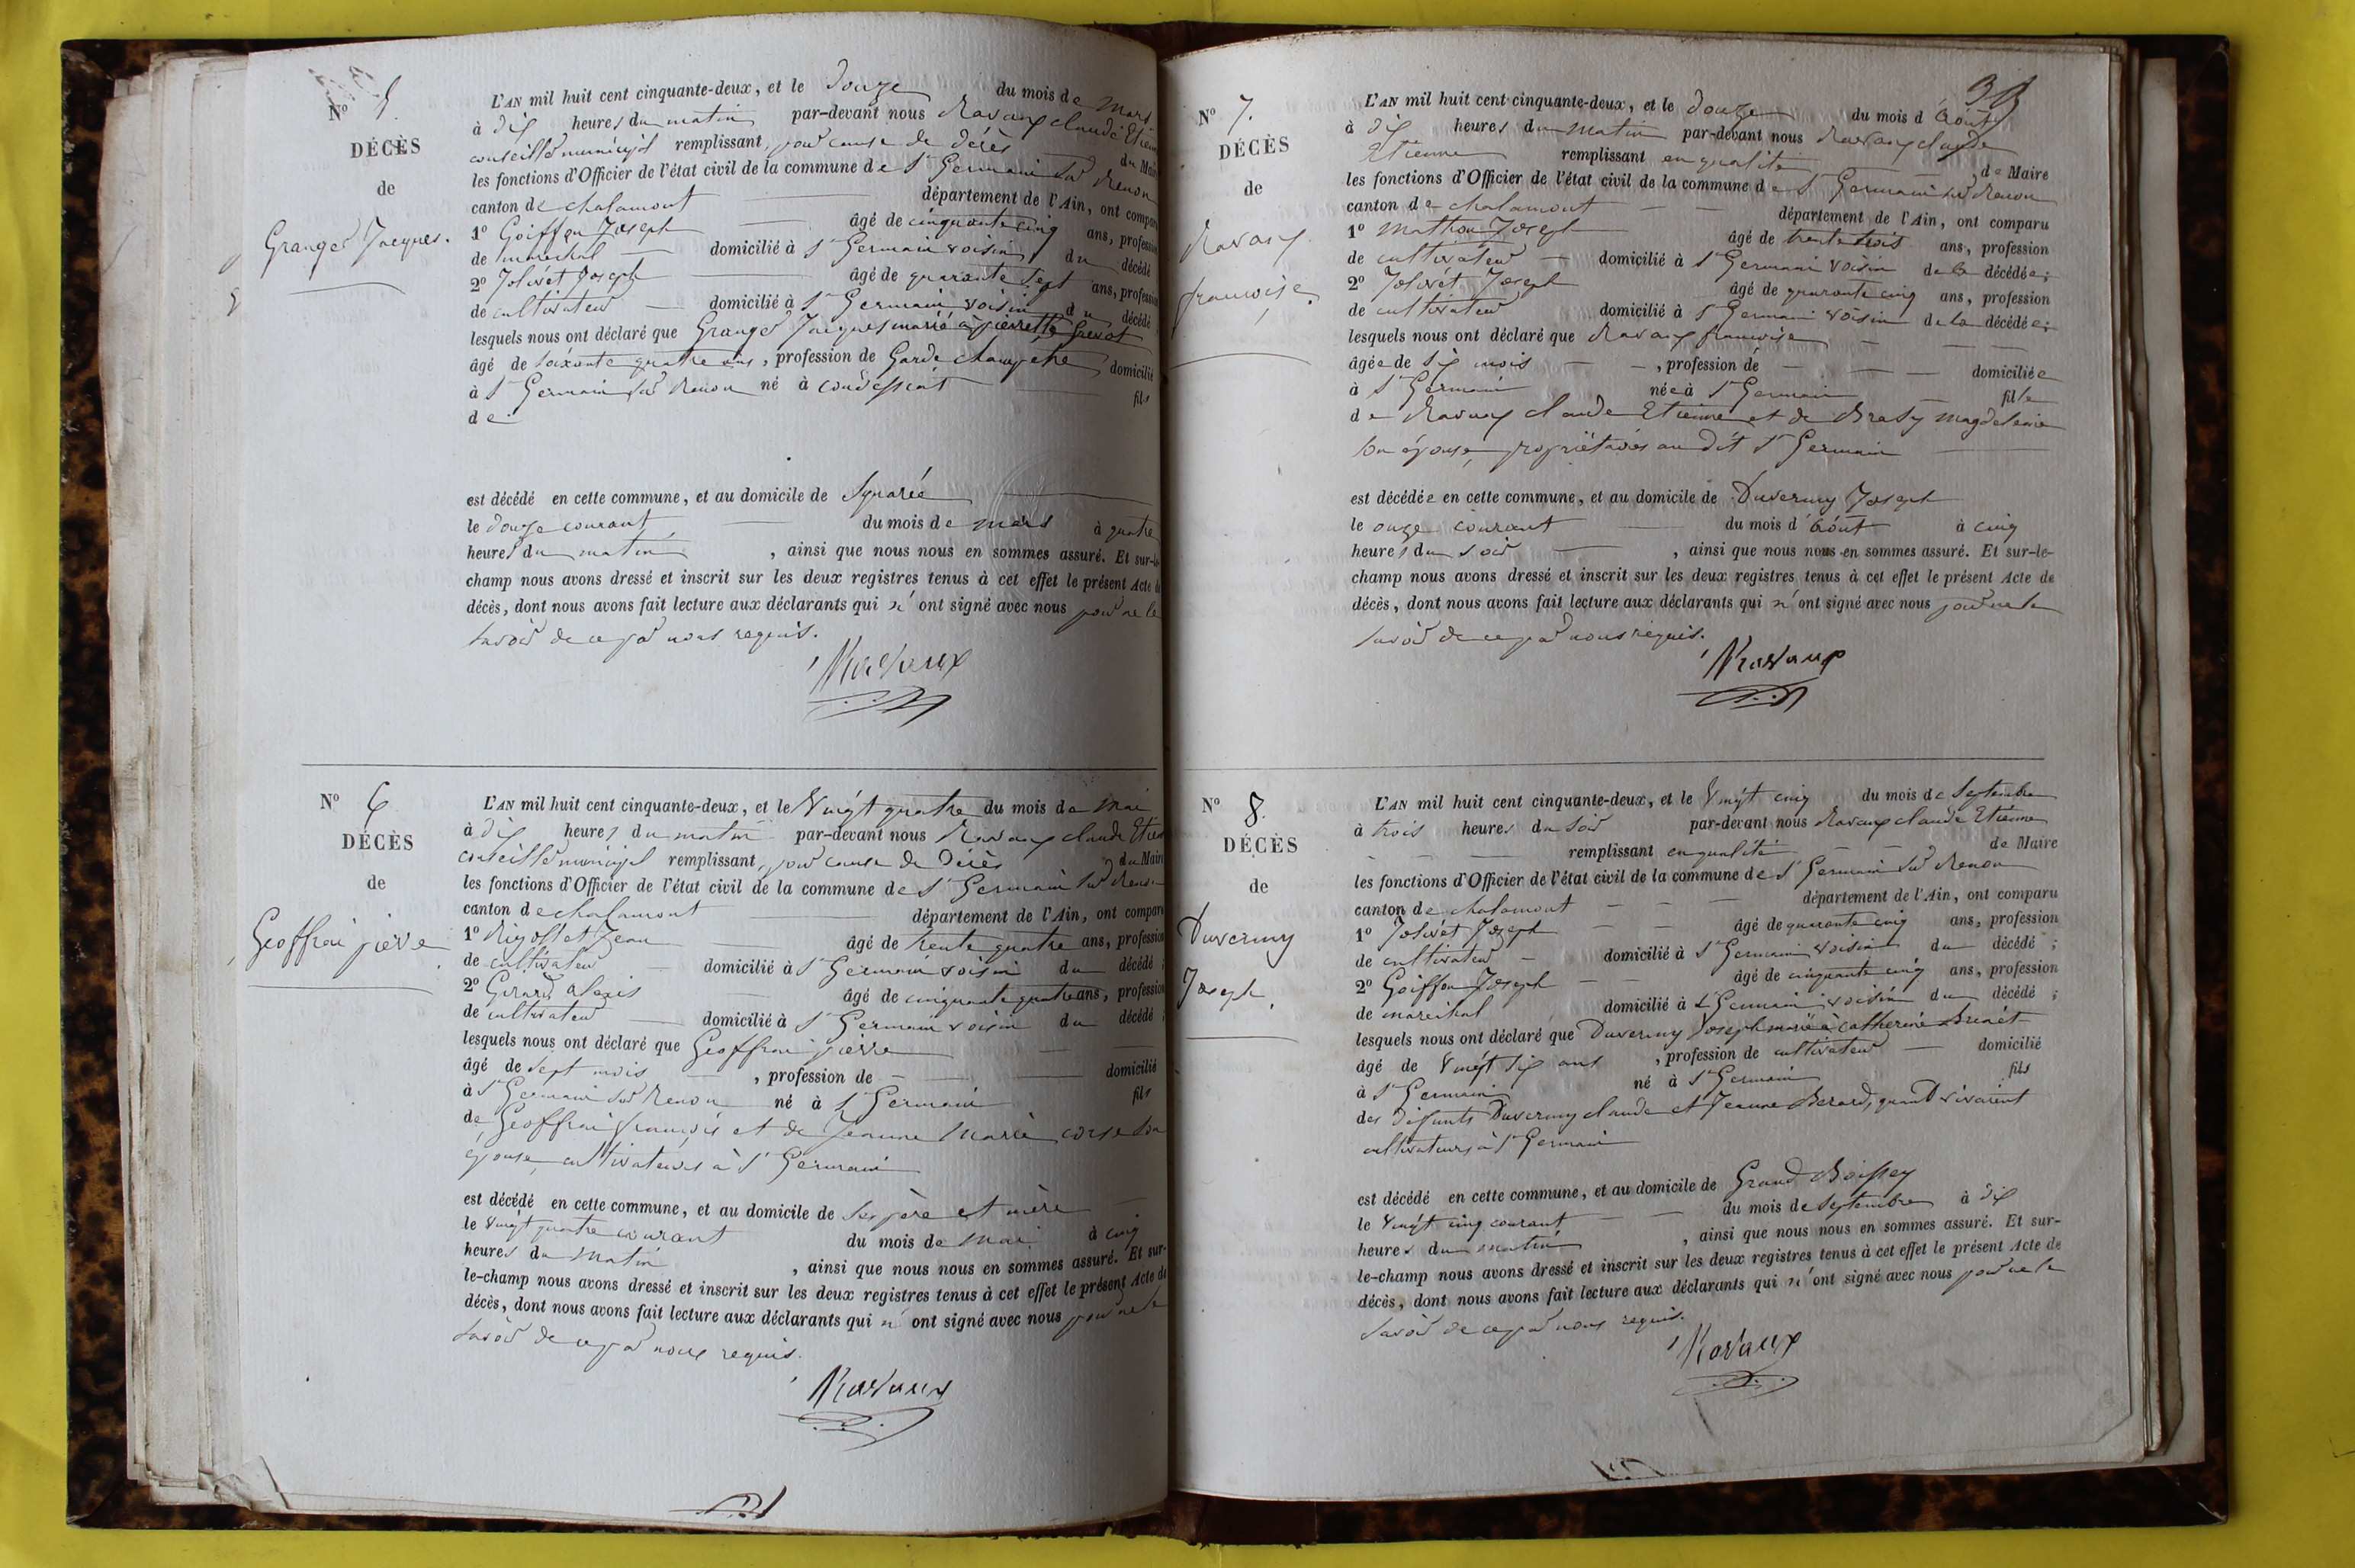 N° 5.
DÉCÈS
de
Granger Jacques.
L'AN mil huit cent cinquante-deux, et le douze du mois de Mars
à dix heures du matin par-devant nous Ravaux claude Etienne
conseiller municipal remplissant, pour cause de décès du Maire
les fonctions d'Officier de l'état civil de la commune de St Germain sur Renon
canton de chalamont département de l'Ain, ont comparu
1° Goiffon Joseph âgé de cinquante cinq ans, profession
de maréchal domicilié à St Germain voisin du décédé
2° Jolivét Joseph âgé de quarante sept ans, profession
de cultivateur domicilié à St Germain voisin du décédé
lesquels nous ont déclaré que Granger Jacques marié à pierrette
âgé de soixante quatre ans, profession de Garde champetre domicilié
à St Germain sur Renon né à condessiat fils
de
est décédé en cette commune, et au domicile de
le douze courant du mois de mars à quatre
heures du matin, ainsi que nous nous en sommes assuré. Et sur-le-
champ nous avons dressé et inscrit sur les deux registres tenus à cet effet le présent Acte de
décès, dont nous avons fait lecture aux déclarants qui n'ont signé avec nous pour ne le
savoir de ce par nous requis.
Ravaux
N° 6
DÉCÈS
de
Geoffrai pierre
L'AN mil huit cent cinquante-deux, et le Vingt quatre du mois de mai
à dix heures du matin par-devant nous Ravaux claude Etienne
conseiller municipal remplissant, pour cause de Décès du Maire
les fonctions d'Officier de l'état civil de la commune de St Germain sur Renon
canton de chalamont département de l'Ain, ont comparu
1° Rigollet Jean âgé de trente quatre ans, profession
de cultivateur domicilié à St Germain voisin du décédé;
2° Gerard alexis âgé de cinquante quatre ans, profession
de cultivateur domicilié à St Germain voisin du décédé;
lesquels nous ont déclaré que Geoffrai pierre
âgé de sept mois, profession de domicilié
à St Germain sur Renon né à St Germain fils
de Geoffrai françois et de Jeanne Marie corse son
epouse, cultivateurs à St Germain
est décédé en cette commune, et au domicile de ses père et mère
le vingt quatre courant du mois de mai à cinq
heures du matin, ainsi que nous nous en sommes assuré. Et sur-
le-champ nous avons dressé et inscrit sur les deux registres tenus à cet effet le présent Acte de
décès, dont nous avons fait lecture aux déclarants qui n'ont signé avec nous pour ne le
savoir de ce par nous requis.
Ravaux
39
N° 7.
DÉCÈS
de
Ravaux
francoise.
L'AN mil huit cent cinquante-deux, et le douze du mois d'Août
à dix heures du matin par-devant nous Ravaux claude
Etienne remplissant en qualité de Maire
les fonctions d'Officier de l'état civil de la commune de St Germain sur Renon
canton de chalamont département de l'Ain, ont comparu
1° mathon Joseph âgé de trente trois ans, profession
de cultivateur domicilié à St Germain voisin de la décédée;
2° Jolivét Joseph âgé de quarante cinq ans, profession
de cultivateur domicilié à St Germain voisin de la décédée;
lesquels nous ont déclaré que Ravaux francoise
âgée de dix mois, profession de domiciliée
à St Germain née à St Germain fille
de Ravaux claude Etienne et de Magdeleine
son épouse, propriétaires au dit St Germain
est décédée en cette commune, et au domicile de Duverny Joseph
le onze courant du mois d'Août à cinq
heures du soir, ainsi que nous nous en sommes assuré. Et sur-le-
champ nous avons dressé et inscrit sur les deux registres tenus à cet effet le présent Acte de
décès, dont nous avons fait lecture aux déclarants qui n'ont signé avec nous pour ne le
savoir de ce par nous requis.
Ravaux
N° 8.
DÉCÈS
de
Duverny
Joseph.
L'AN mil huit cent cinquante-deux, et le Vingt cinq du mois de Septembre
à trois heures du soir par-devant nous Ravaux claude Etienne
remplissant en qualité de Maire
les fonctions d'Officier de l'état civil de la commune de St Germain sur Renon
canton de chalamont département de l'Ain, ont comparu
1° Jolivét Joseph âgé de quarante cinq ans, profession
de cultivateur domicilié à St Germain voisin du décédé;
2° Goiffon Joseph âgé de cinquante cinq ans, profession
de maréchal domicilié à St Germain voisin du décédé;
lesquels nous ont déclaré que Duverny Joseph marié à Catherine Brenét
âgé de Vingt six ans, profession de cultivateur domicilié
à St Germain né à St Germain fils
des défunts Duverny claude et Jeanne Berard, quand vivaient
cultivateurs à St Germain
est décédé en cette commune, et au domicile de Grand Boissey
le vingt cinq courant du mois de Septembre à dix
heures du matin, ainsi que nous nous en sommes assuré. Et sur-
le-champ nous avons dressé et inscrit sur les deux registres tenus à cet effet le présent Acte de
décès, dont nous avons fait lecture aux déclarants qui n'ont signé avec nous pour ne le
savoir de ce par nous requis.
Ravaux